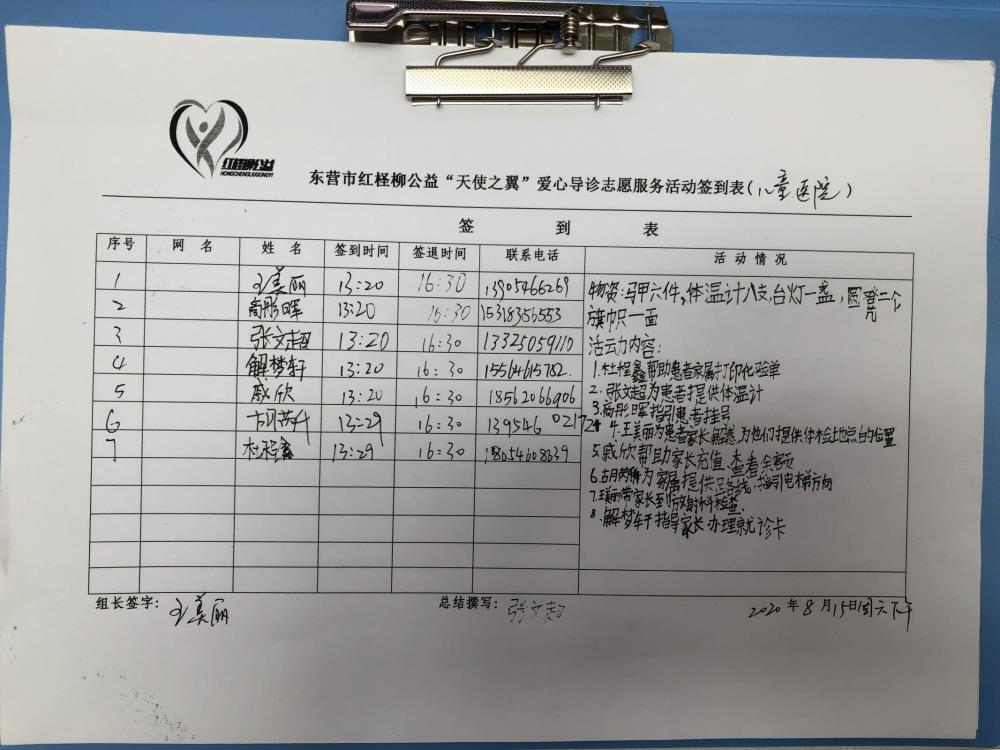 红柽柳公益
HONGCHENGLIUGONGYI
东营市红柽柳公益“天使之翼”爱心导诊志愿服务活动签到表(儿童医院)
签 到 表
序号 网 名 姓 名 签到时间 签退时间 联系电话 活 动 情 况
1 王美丽 13:20 16:30 13905466269
2 商彤晖 13:20 16:30 15318356553
3 张文超 13:20 16:30 13325059110
4 解梦轩 13:20 16:30 15564615782.
5 戚欣 13:20 16:30 18562066906
6 13:29 16:30 139546 02172
7 杜程鑫 13:29 16:30 18654608639
物资:马甲六件,体温计八支,台灯一盏,圆凳二个
旗帜一面
活动内容:
1.杜程鑫帮助患者家属打印化验单
2.张文超为患者提供体温计
3.商彤晖指引患者挂号
4.王美丽为患者家长解惑,为他们提供体检地点台的位置
5.戚欣帮助家长充值、查看余额
6.为家属提供路线,指引电梯方向
7.王美丽带家长到放射科检查.
8.解梦轩指导家长办理就诊卡
组长签字: 王美丽 总结撰写: 张文超 2020年8月15日周六下午